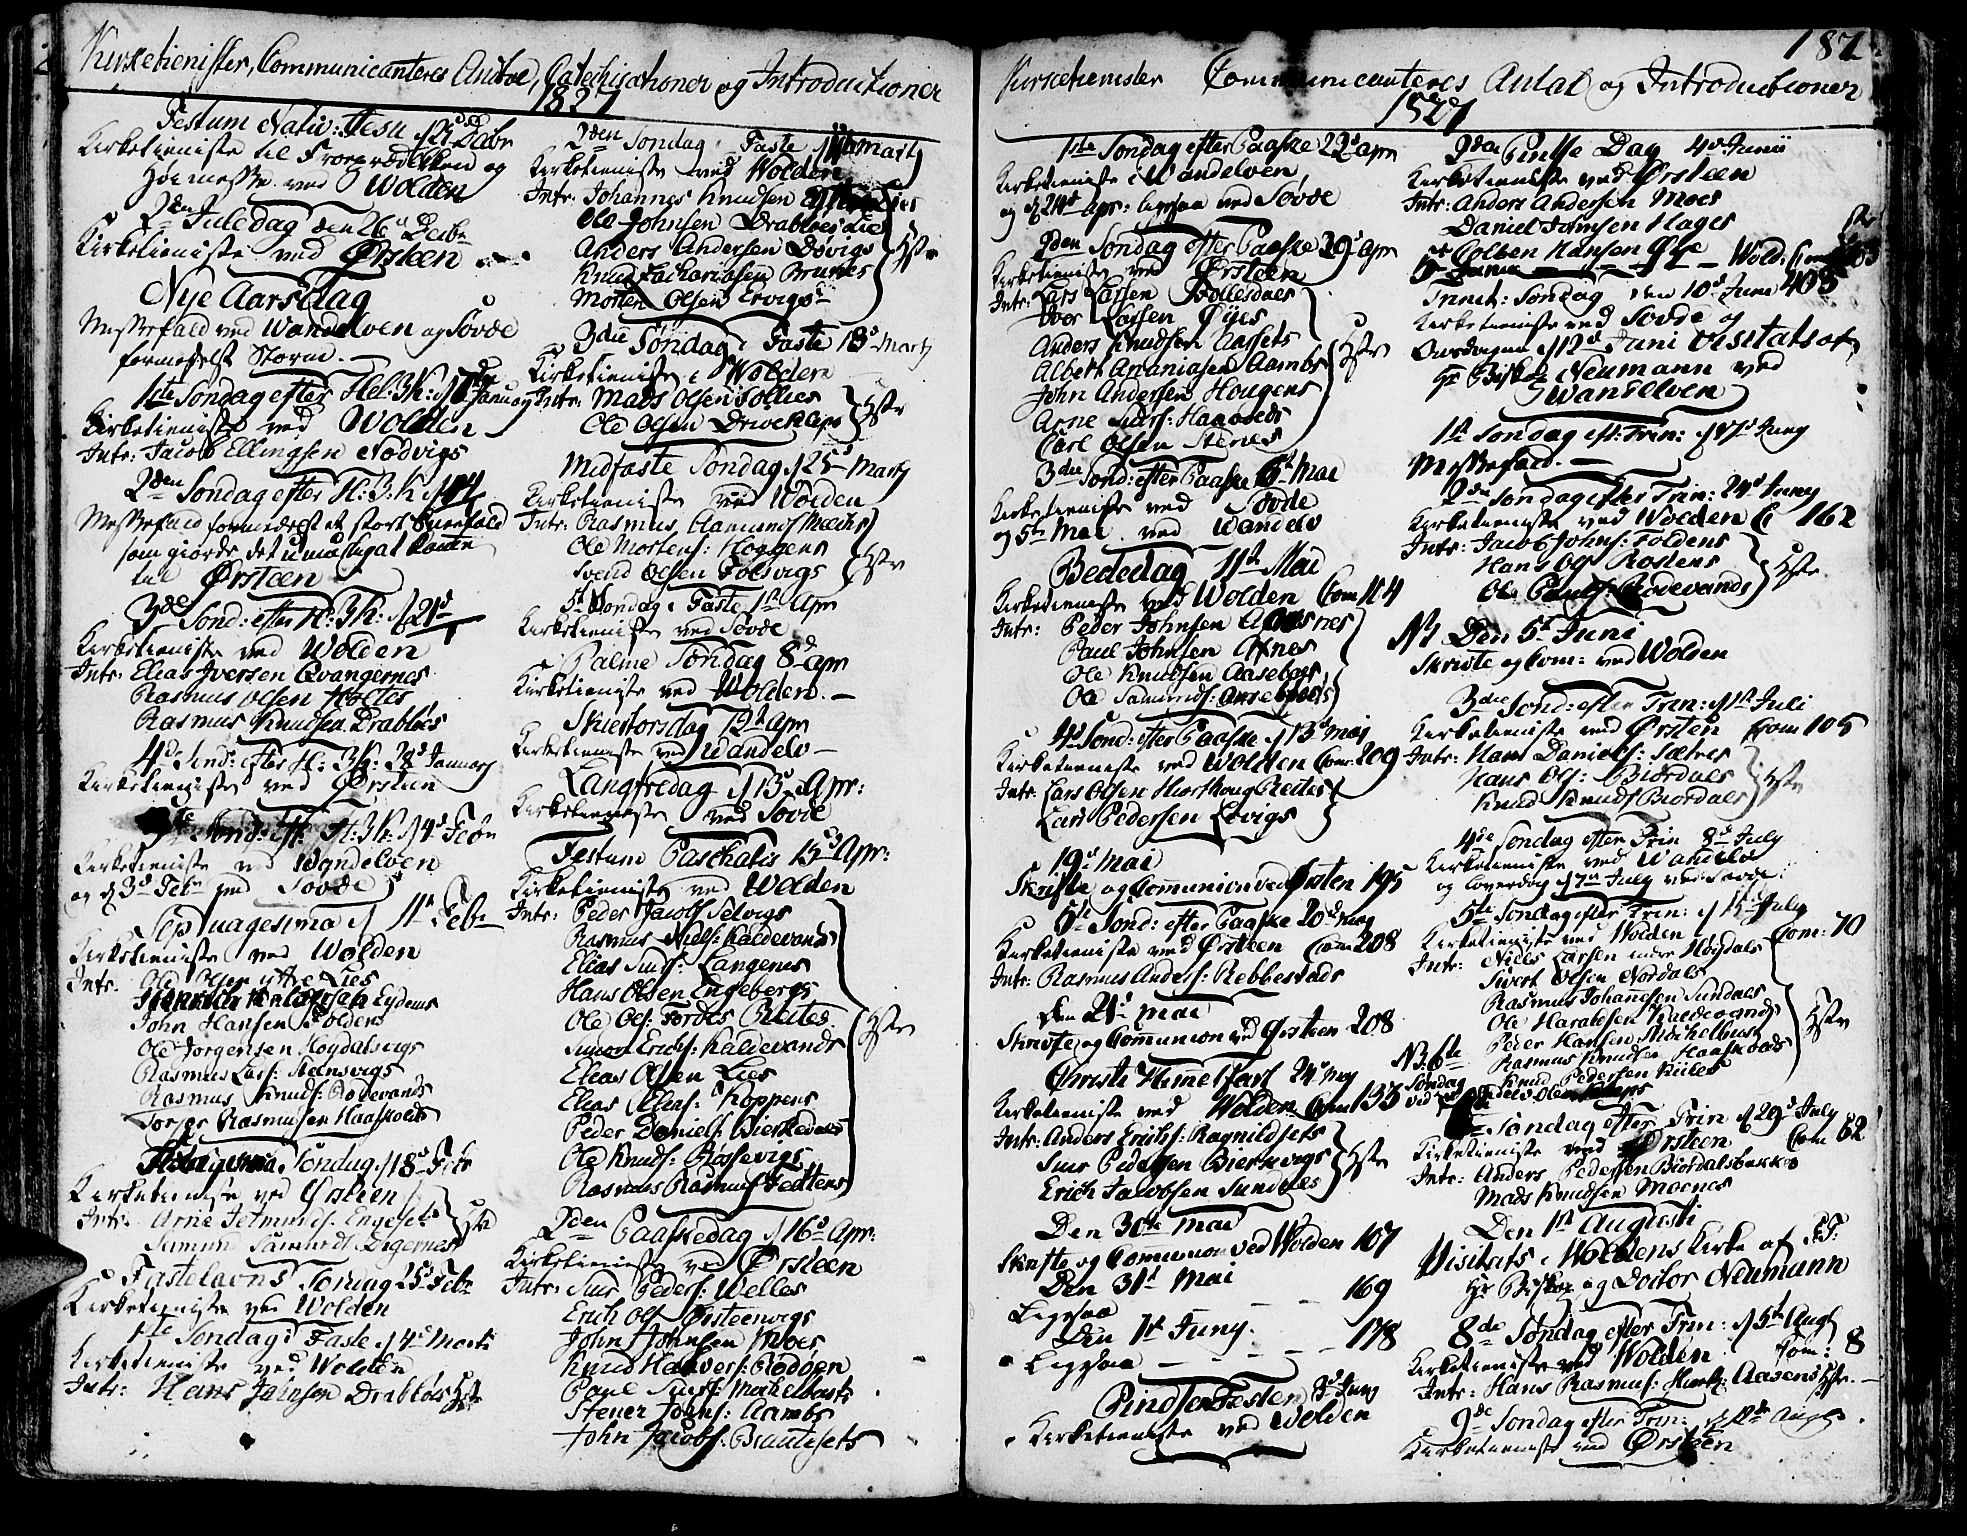 Kirketienister, Communicanteres Antal, Catechisationer og Introductioner
1827
Festum Nativ: Jesu
Kirketieniste til Froeprædiken og
Høimesse ved Wolden
2den Juledag den 26d Decbr
Kirketieniste ved Ørsteen
Nye Aarsdag
Messefald ved Wandelven og Søvde
formedelst Storm.
1ste Søndag efter Hel: 3K: Januarj
Kirketieniste ved Wolden
Intr: Jacob Ellingsen Nødvigs
2den Søndag efter H: 3: K 14
Messefald formedelst et stort Sneefald
som giorde det umueligt at komme
til Ørsteen
3de Sønd: efter H: 3K: 21d
Kirketieniste ved Wolden
Intr: Elias Iversen Qvangernes
Rasmus Olsen Holtes
Rasmus Knudsen Drabløes
4de Sønd: efter H: 3K: 28d Januarj
Kirketieniste ved Ørsteen
Sønd: eft: H: 3K: 4d Febr
Kirketieniste ved Wandelven
og 3d Febr ved Søvde
Septuagesima 11te Feb
Kirketieniste ved Wolden
Intr: Ole Olsen Yttre Lies
Eydems
John Hansen Foldens
Ole Jorgensen Høydalsvigs
Rasmus Lars: Steensvigs
Rasmus Knuds: Rødevands
Torger Rasmusen Haaskolds
Søndag 18d Febr
Kirketieniste ved Ørsteen
Intr: Arne Jetmunds: Engesets
Samund Samunds: Digernes
Fastelavns Søndag 25d Febr
Kirketieniste ved Wolden
1ste Søndag i Faste 4d Marti
Kirketieniste ved Wolden
Intr: Hans Johnsen Drabløs Hstr
2den Søndag i Faste 11te Martj
Kirketieniste ved Wolden
Intr: Johannes Knudsen
Ole Johnsen Drabløes Lie
Anders Andersen Døvigs
Knud Zachariasen Brunes
Morten Olsen Ervigs
Hstr
3die Søndag i Faste 18d Martj
Kirketieniste i Wolden
Intr: Mads Olsen Sollies
Ole Olsen Drivekleps
Hstr
Midfaste Søndag 25d Martj
Kirketieniste ved Wolden
Intr: Rasmus Aamunds Meekes
Ole Mortens: Hoggens
Svend Olsen Folsvigs
Hstr
5te Søndag i Faste 1ste Apr
Kirketieniste ved Søvde
Palme Søndag 8d apr
Kirketieniste ved Wolden.
Skiertorsdag 12te apr
Kirketieniste ved Wandelv
Langfredag 13d Apr:
Kirketieniste ved Søvde
Festum Paschatis 15d Apr:
Kirketieniste ved Wolden
Intr: Peder Jacobs Selvigs
Rasmus Niels: Kaldevands
Elias Surs: Langenes
Hans Olsen Engebergs
Ole Ols: Fordes Reites
Simon Erichs: Kaldevands
Elias Olsen Lies
Elias Elias: Koppens
Peder Daniels: Bierkedals
Ole Knuds: Rossevigs
Rasmus Rasmus Fedttens
Hstr
2den Paaskedag 16d Apr:
Kirketieniste ved Ørsteen
Intr: Siur Peders: Welles
Erich Ols Ørsteenvigs
John Johnsen Moes
Knud Halvers: Rødøen
Poul Siurs: Mikelbusts
Stener Johns: Aambs
John Jacobs: Brautesets
187
Kirketienister Communicanteres Antal og Introductioner
1827
1ste Søndag efter Paaske 22d apr
Kirketieniste i Wandelven,
og 21d apr: ligesaa ved Søvde
2den Søndag efter Paaske 29d apr
Kirketieniste ved Ørsteen
Intr: Lars Larsen Follesdals
Iver Larsen Øyes
Anders Knudsen Aassets
Albert Ananiasen Aambs
John Andersen Hougens
Arne Siurs: Haavolds
Carl Olsen Stenes
Hstr
3die Sønd: efter Paaske 6te Mai
Kirketieniste ved Søvde
og 5te Mai ved Wandelv
Bededag 11te Mai
Kirketieniste ved Wolden Com 114
Intr: Peder Johnsen Aasnes
Paul Johnsen Øxnes
Ole Knudsen Aasebøes
Ole Samunds:
4d Sønd: efter Paaske 13d Maj
Kirketieniste ved Wolden Com: 209
Intr. Lars Olsen Hiorthoug Reites
Lars Pedersen Løvigs
19d Mai
Skrifte og Communion ved Ørsten 195
5te Sønd: efter Paaske 20d Maj
Kirketieniste ved Ørsteen Com 208
Intr: Rasmus Anders: Rebbestads
Den 21d Mai
Skrivte og Communion ved Ørsteen 208
Christi Himelfart 24d Maj
Kirketieniste ved Wolden Com 133
Intr: Anders Erichs: Ragnildsets
Siur Pedersen Bierkevigs
Erich Jacobsen Sundnes
Hstr
Den 30te Mai
Skrifte og Communion ved Wolden 107
Den 31d Mai
Ligesaa 169
Den 1ste Junij.
Ligesaa 178
Pindsefesten 3d Junj
Kirketieniste ved Wolden
2den Pintse Dag 4d Junii
Kirketieniste ved Ørsteen
Intr: Anders Andersen Moes
Daniel Johnsen Hages
Colben Hansen Øye
Wold. Com
Trinit: Søndag den 10d Juni 405
Kirketieniste ved Søvde og
Onsdagen 12d Juni Visitats af
Hr Biskop Neumann ved
Wandelven
1ste Søndag eft: Trin: 17d Junij
Messefald.
2den Søndag efter Trin: 24d Junij
Kirketieniste ved Wolden C 162
Intr: Jacob Johns: Foldens
Hans Ols Rostens
Ole Pauls: Rødevands
Hstr.
NB Den 5te Juni
Skrivte og Com: ved Wolden
3die Sønd: efter Trin: 1ste Juli
Kirketieniste ved Ørsten Com 105
Intr: Hans Daniels: Sætres
Hans Ols: Biørdals
Knud Knuds Biørdals
Hstr
4de Søndag efter Trin 8d July
Kirketieniste ved Wandelv
og Løverdag 7de July ved Søvde.
5te Søndag efter Trin: July
Kirketieniste ved Wolden Com: 70
Intr: Niels Larsen indre Høydals
Sivert Olsen Nordals
Rasmus Johannesen Sundals
Ole Haraldsen Kaldevands
Peder Hansen Mikelbust
Rasmus Knudsen Haaskolds
Knud Pedersen Ruites
Hstr
NB: 6te
Søndag
Søndag efter Trin 29d July
Kirketieniste ved Ørsteen Com 82
Intr: Anders Pedersen Biørdalsbakke
Mads Knudsen Moenes
Den 1ste Augusti
Visitats i Woldens Kirke af S.T:
Hr Biskop og Doctor Neumann
8de Søndag efter Trin: 5te Augs
Kirketieniste ved Wolden. Com: 8
Intr: Hans Rasmus: Aasens Hstr.
9de Søndag efter Trin: 12te Augs
Kirketieniste ved Ørsteen